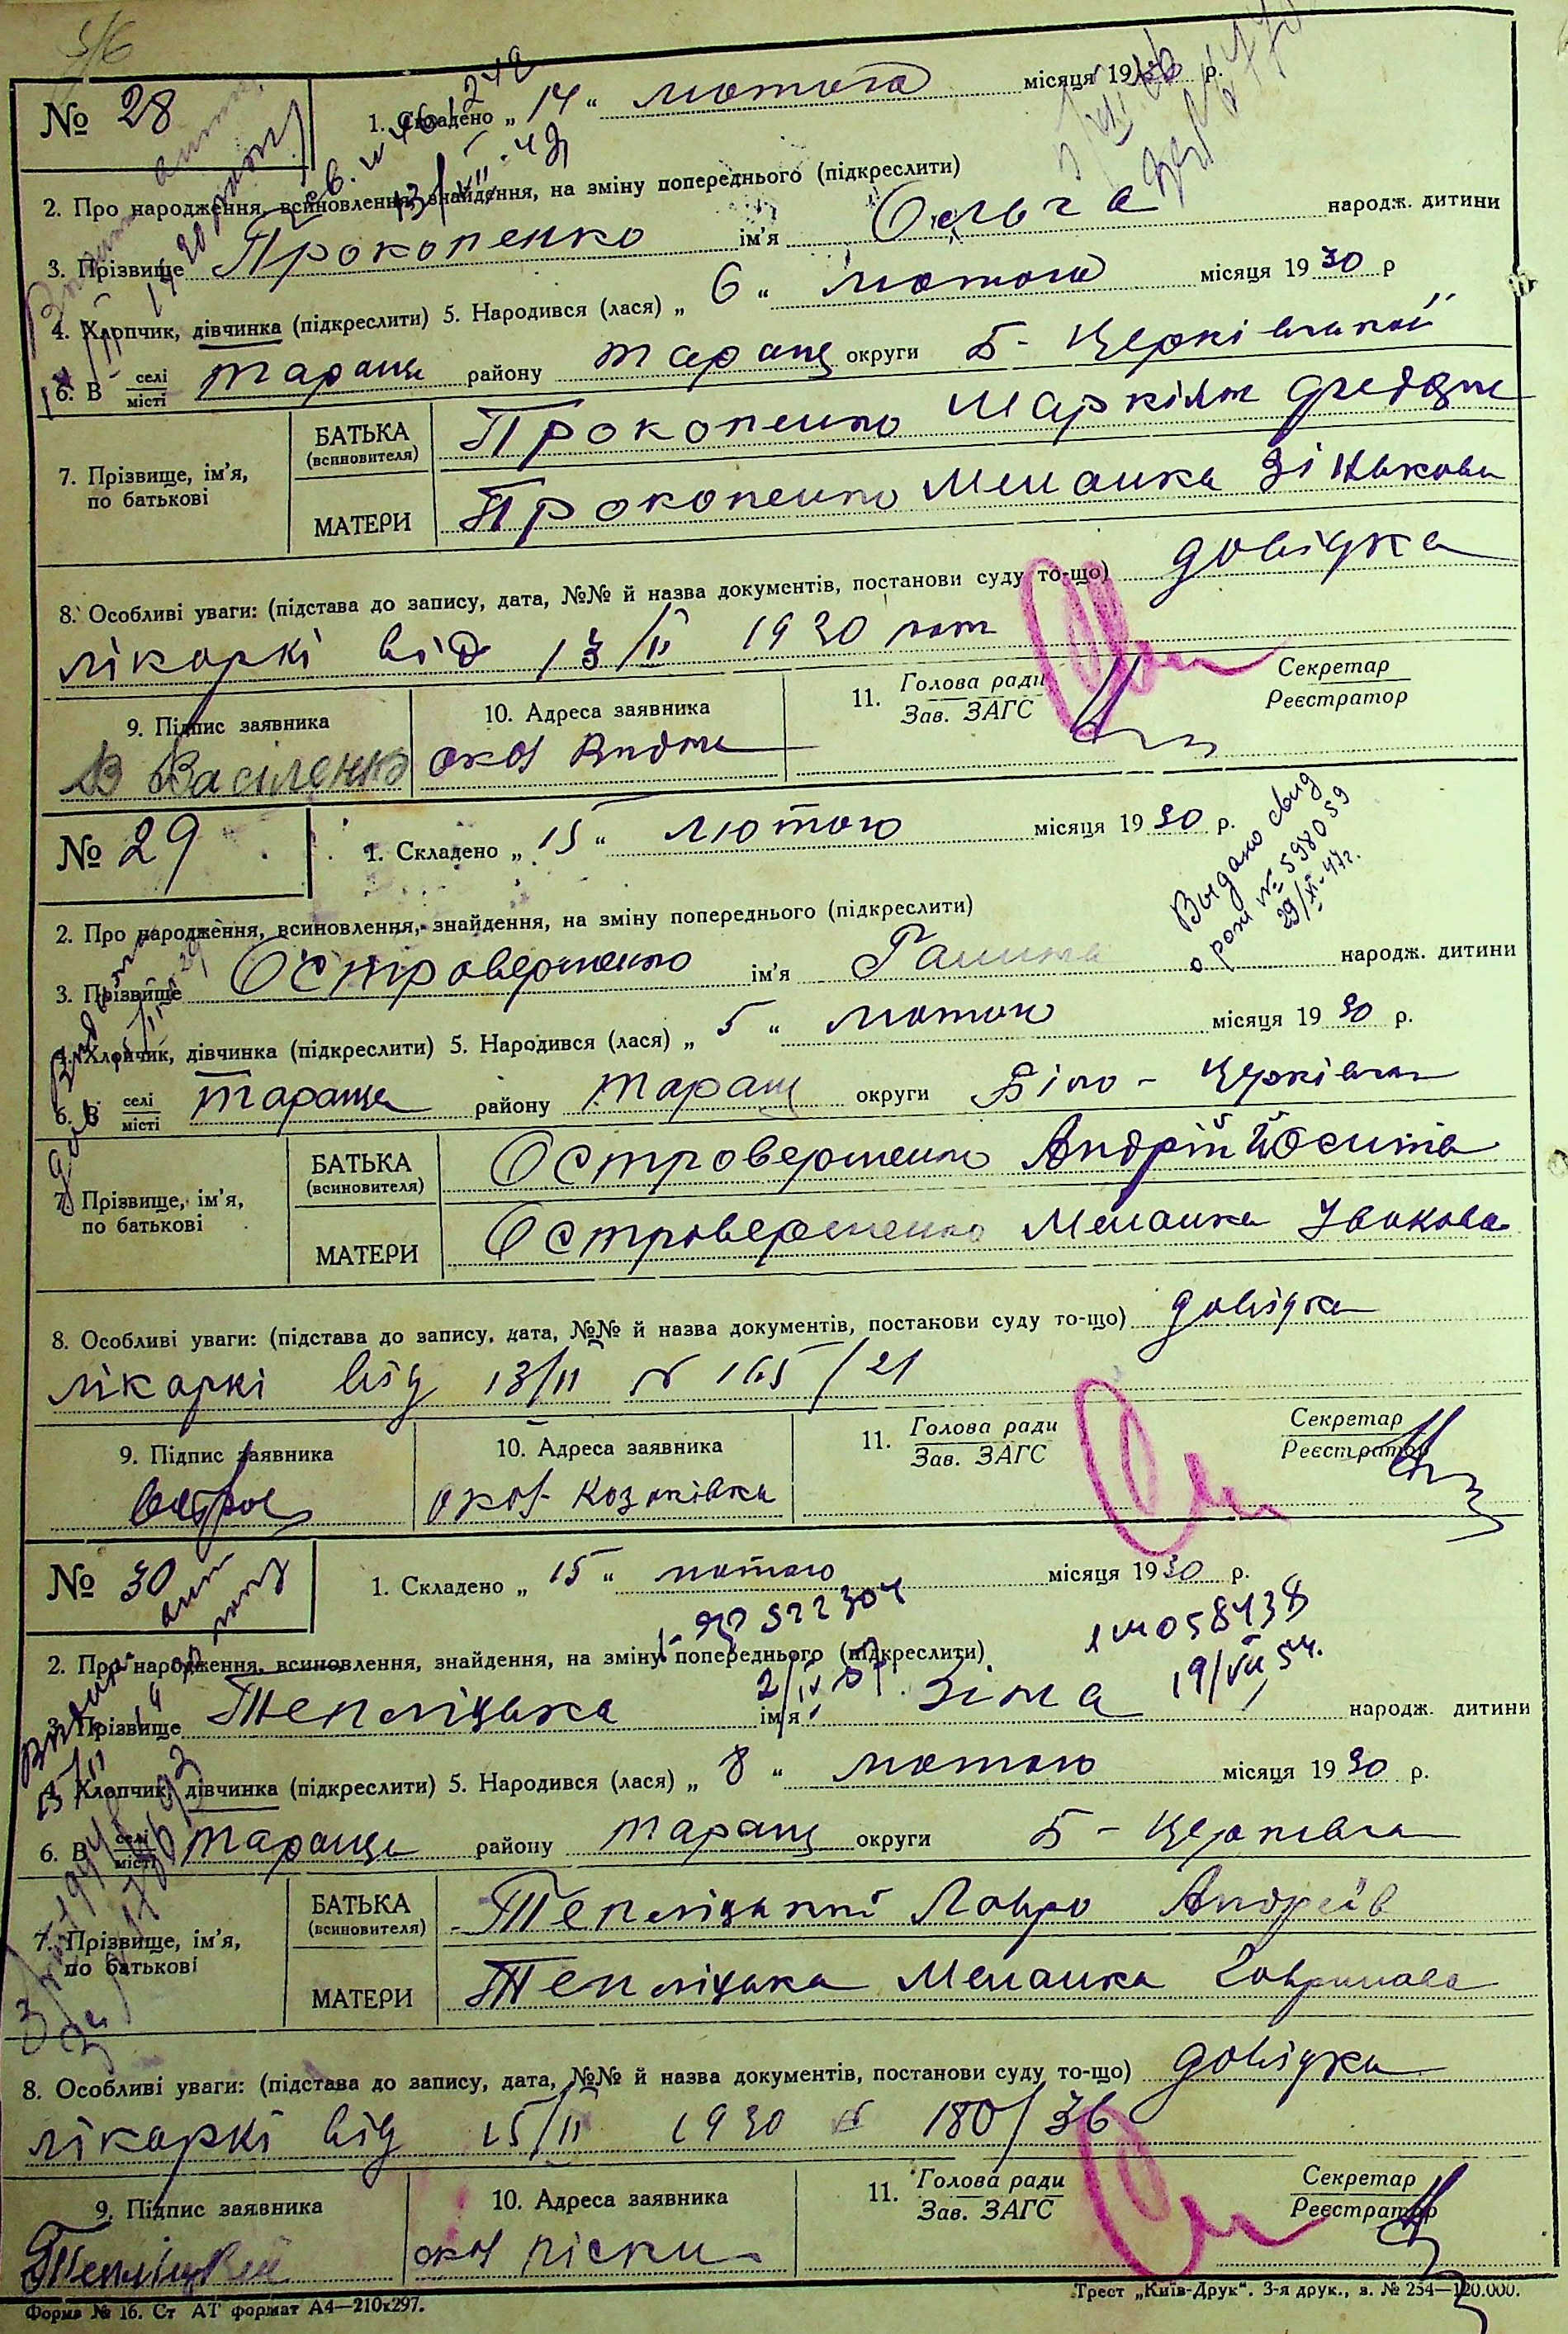 5/6
№ 28
1. Складено „ 14 “ лютого місяця 1930 р.
2. Про народження, всиновлення, знайдення, на зміну попереднього (підкреслити)
3. Прізвище Прокопенко ім'я Ольга народж. дитини
4. Хлопчик, дівчинка (підкреслити) 5. Народився (лася) „ 6 “ лютого місяця 1930 р
6. В селі/місті Тараща району Таращ округи Б - Церківської
7. Прізвище, ім'я, по батькові
БАТЬКА (всиновителя) Прокопенко
МАТЕРИ Прокопенко Меланка Зінькова
8. Особливі уваги: (підстава до запису, дата, №№ й назва документів, постанови суду то-що) довідка
лікаркі від 13/II 1930
9. Підпис заявника
10. Адреса заявника
11. Голова ради
Зав. ЗАГС
Секретар
Реєстратор
В Василенко
окол
№ 29
1. Складено „ 15 “ лютого місяця 1930 р.
Выдано свид
о рож № 598059
29/XI-47г.
2. Про народження, всиновлення, знайдення, на зміну попереднього (підкреслити)
3. Прізвище Островершенко ім'я Ганна народж. дитини
4. Хлопчик, дівчинка (підкреслити) 5. Народився (лася) „ 5 “ лютого місяця 1930 р.
6. В селі/місті Тараща району Таращ округи Біло - Церківськ
7. Прізвище, ім'я, по батькові
БАТЬКА (всиновителя) Островершенко Андрій Йосипів
МАТЕРИ Островершенко Меланка
8. Особливі уваги: (підстава до запису, дата, №№ й назва документів, постанови суду то-що) довідка
лікаркі від 13/II № 165/21
9. Підпис заявника
10. Адреса заявника
11. Голова ради
Зав. ЗАГС
Секретар
Реєстратор
окол Козаківка
№ 30
1. Складено „ 15 “ лютого місяця 1930 р.
2. Про народження, всиновлення, знайдення, на зміну попереднього (підкреслити)
19/VII 54.
3. Прізвище Тепліцька ім'я Зіна народж. дитини
4. Хлопчик, дівчинка (підкреслити) 5. Народився (лася) „ 8 “ лютого місяця 1930 р.
6. В селі/місті Тараща району Таращ округи Б - Церківськ
7. Прізвище, ім'я, по батькові
БАТЬКА (всиновителя) Тепліцький Лавро Андреїв
МАТЕРИ Тепліцька Меланка Гаврилова
8. Особливі уваги: (підстава до запису, дата, №№ й назва документів, постанови суду то-що) довідка
лікаркі від 15/II 1930 № 180/36
9. Підпис заявника
10. Адреса заявника
11. Голова ради
Зав. ЗАГС
Секретар
Реєстратор
Тепліцкий
окол піски
Форма № 16. Ст АТ формат А4—210х297.
Трест „Київ-Друк“. 3-я друк., з. № 254—120.000.